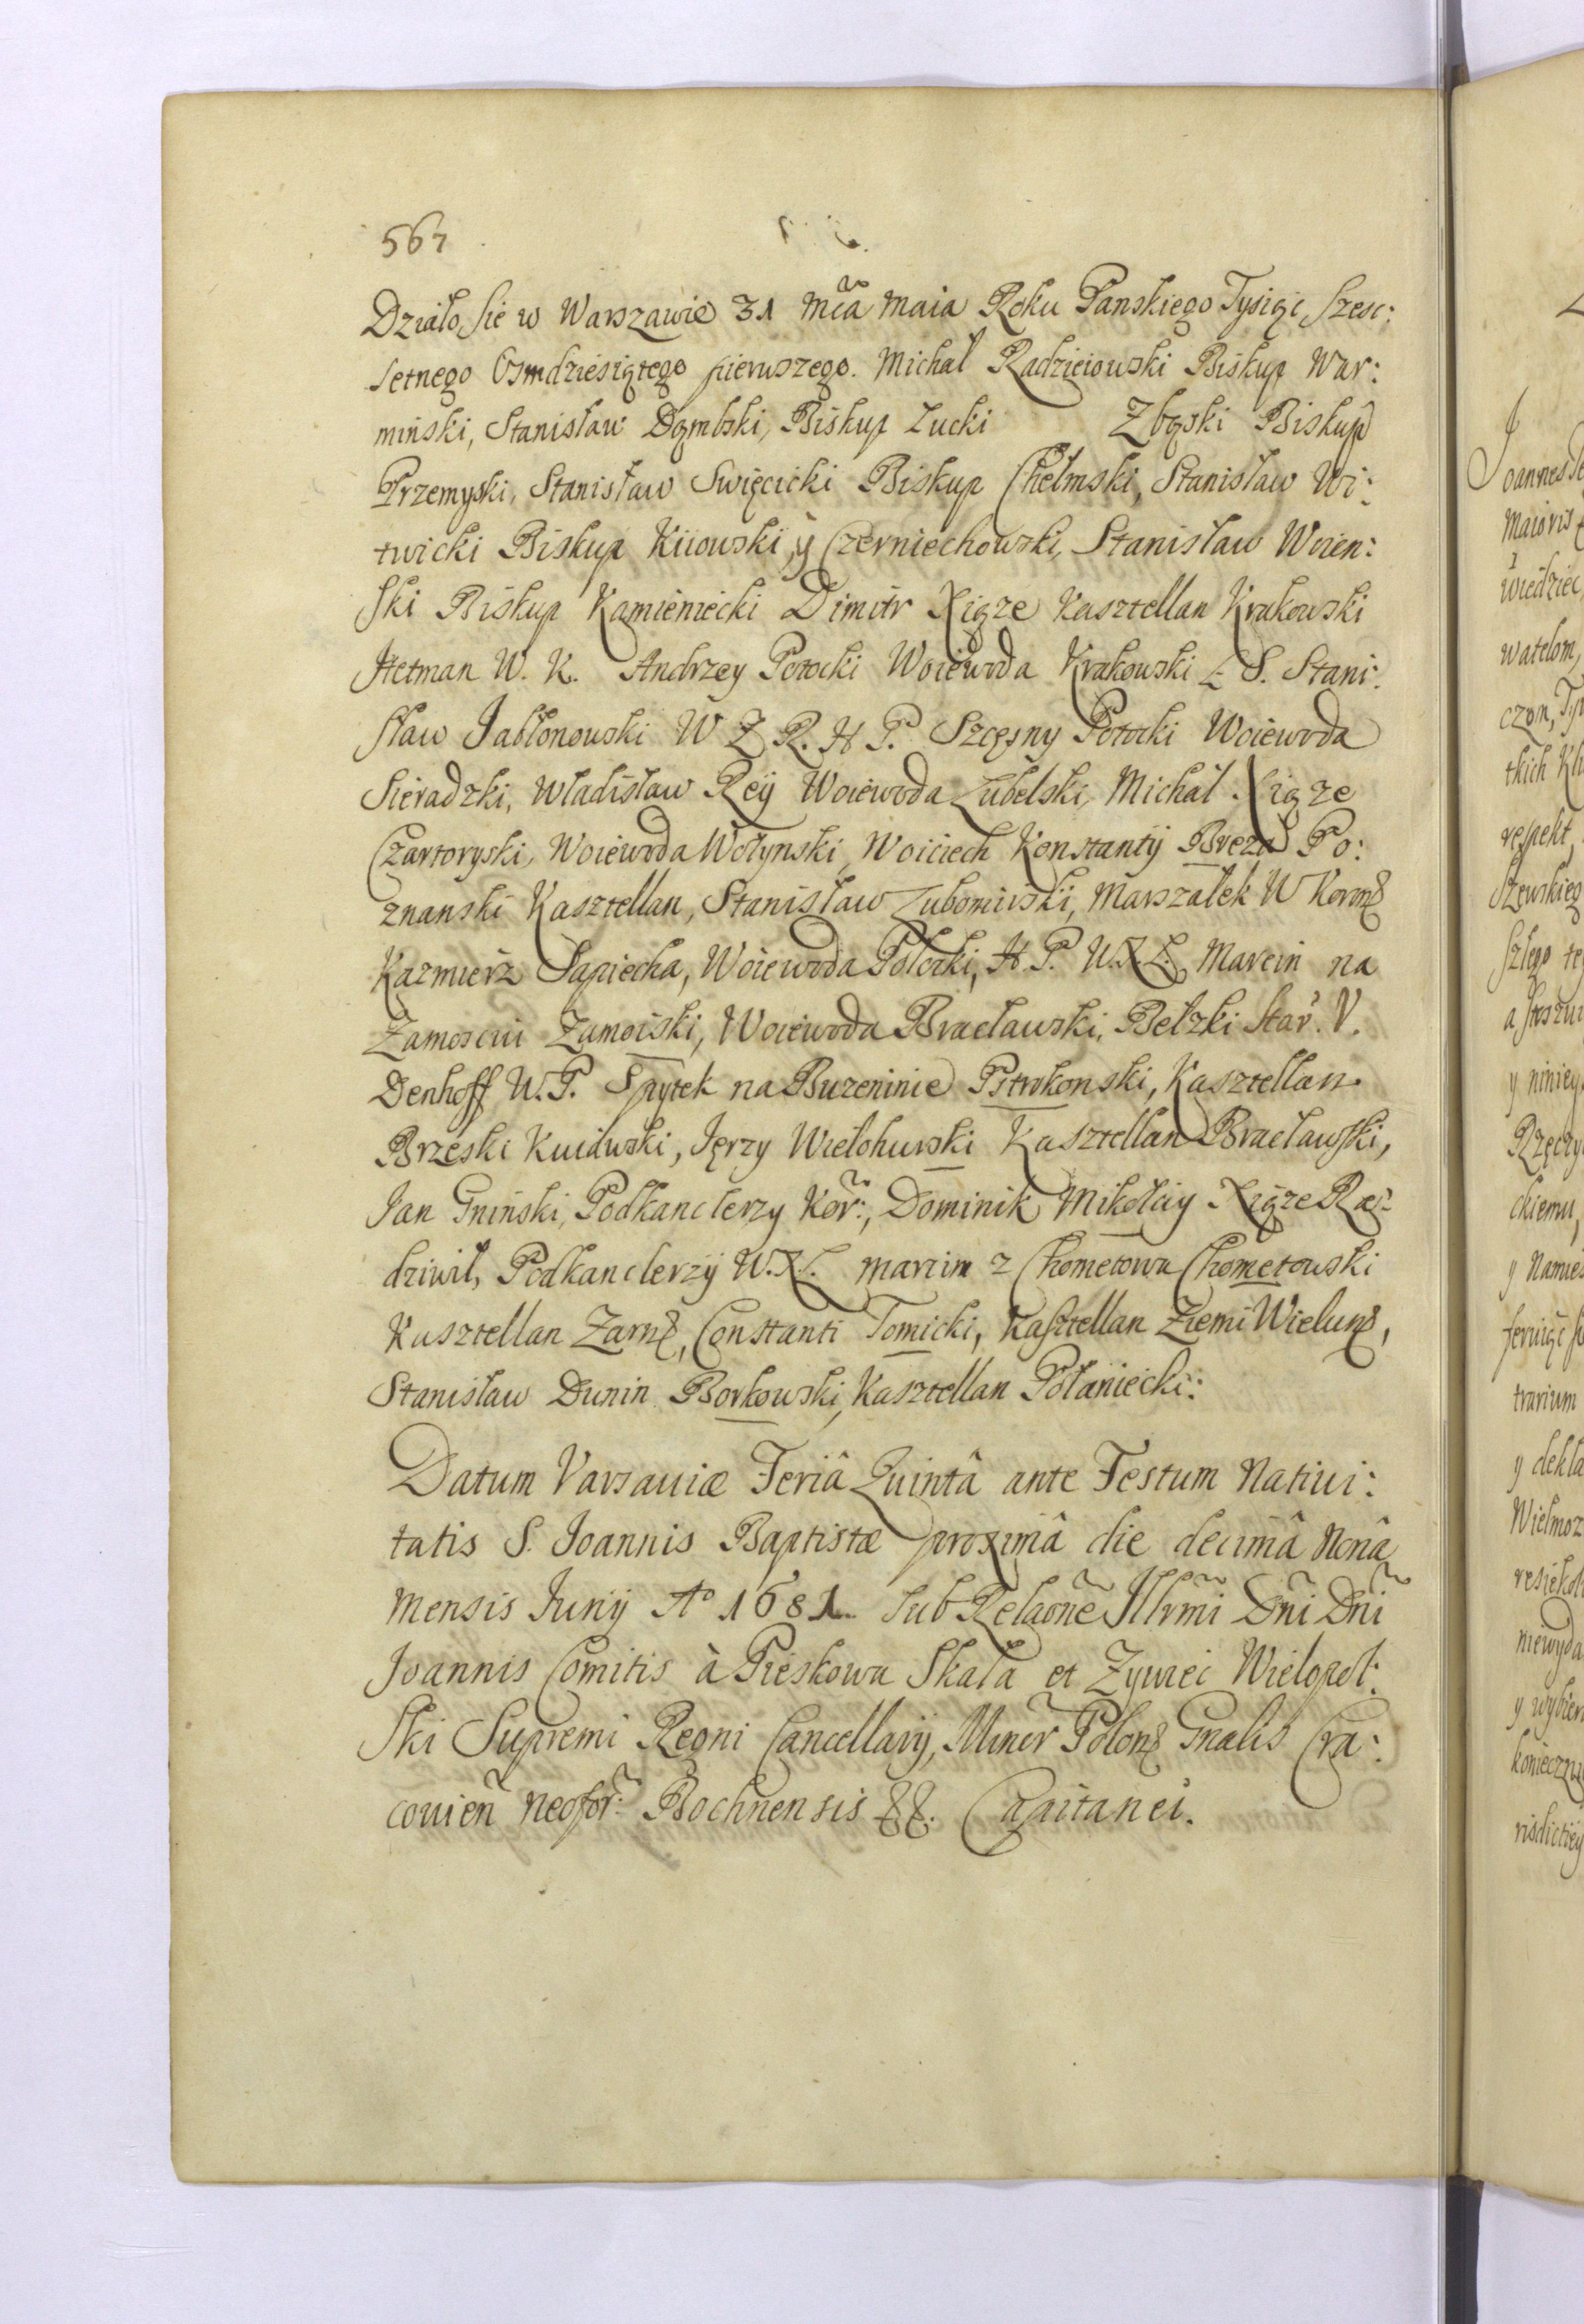 567
Działo Sie w Warszawie 31 Mca Maia Roku Panskiego Tysiąc Szesc:
setnego Osmdziesiątego pierwszego. Michał Radzieiowski Biskup War:
minski, Stanisław Dąmbski, Biskup Łucki Zbąski Biskup
Przemyski, Stanisław Swięcicki Biskup Chełmski, Stanisław Wi:
twicki Biskup Kiiowski, y Czerniechowski, Stanisław Woien:
ski Biskup Kamieniecki Dimitr Xiąze Kasztellan Krakowski
Hetman W. K. Andrzey Potocki Woiewoda Krakowski S. Stani:
sław Jabłonowski W Z R. H P. Szczęsny Potocki Woiewoda
Sieradzki, Władisław Reÿ Woiewoda Lubelski, Michał Xiąze
Czartoryski, Woiewoda Wołynski, Woiciech Konstantÿ Breza Po:
znanski Kasztellan, Stanisław Lubomirski, Marszałek W Koron
Kazmierz Sapiecha, Woiewoda Połocki, H. P. W.X.L. Marcin na
Zamosciu Zamoiski, Woiewoda Bracławski, Bełzki Star. V.
Denhoff W. P. Spytek na Buzeninie Pstrokonski, Kasztellan
Brzeski Kuiawski, Jerzy Wielohurski Kasztellan Bracławski,
Jan Gniński, Podkanclerzy Kor:, Dominik Mikołay Xiąze Ra:
dziwił, Podkanclerzÿ W.X.L. Marcin z Chometowa Chometowski
Kasztellan Zarn, Constanti Tomicki, Kasztellan Ziemi Wielun,
Stanisław Dunin Borkowski, Kasztellan Połaniecki:
Datum Varsaviæ Feriâ Quintâ ante Festum Nativi:
tatis S. Joannis Baptistæ proximâ die decimâ Nonâ
Mensis Junÿ Aº 1681. sub Relaone Illrmi Dni Dni
Joannis Comitis à Pieskowa Skała et Zywiec Wielopol:
ski Supremi Regni Cancellarÿ, Miner Polon Gnalis Cra:
covien Neofor: Bochnensis &&. Capitanei.